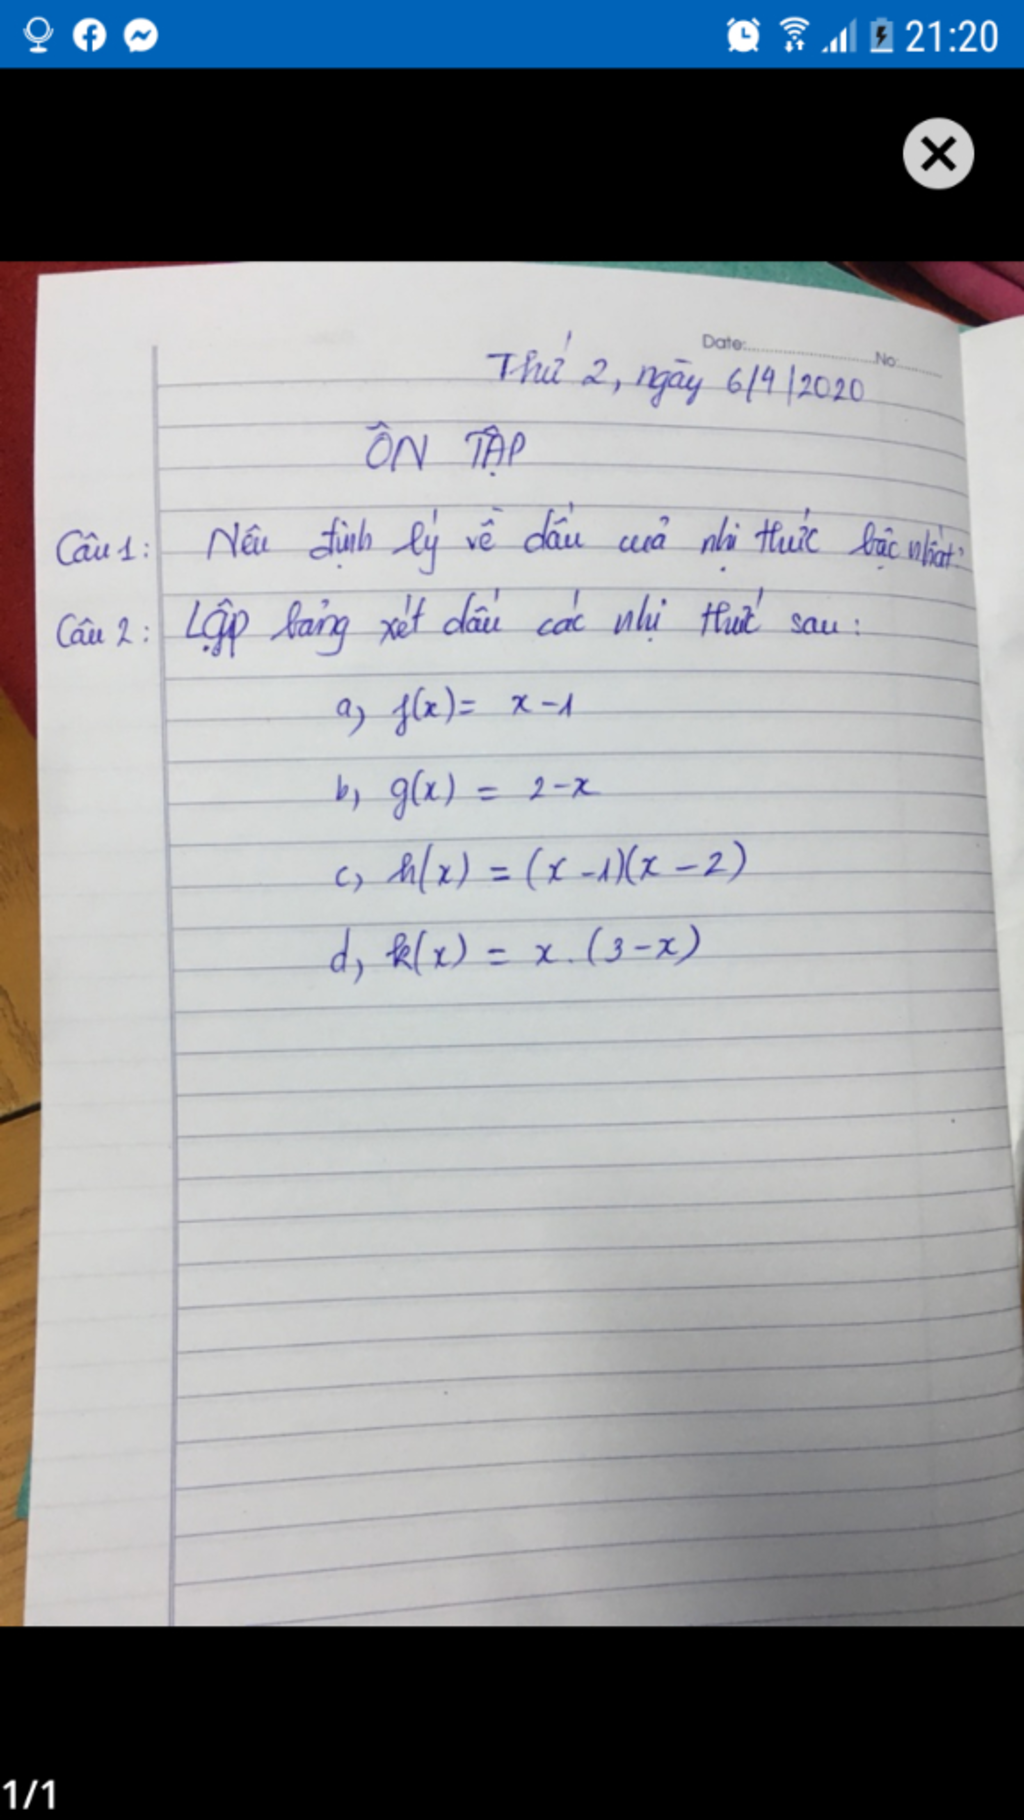 21:20
Date: No:
Thứ 2, ngày 6/4/2020
ÔN TẬP
Câu 1: Nêu định lý về dấu của nhị thức bậc nhất?
Câu 2: Lập bảng xét dấu các nhị thức sau:
a, f(x) = x - 1
b, g(x) = 2 - x
c, h(x) = (x - 1)(x - 2)
d, k(x) = x . (3 - x)
1/1